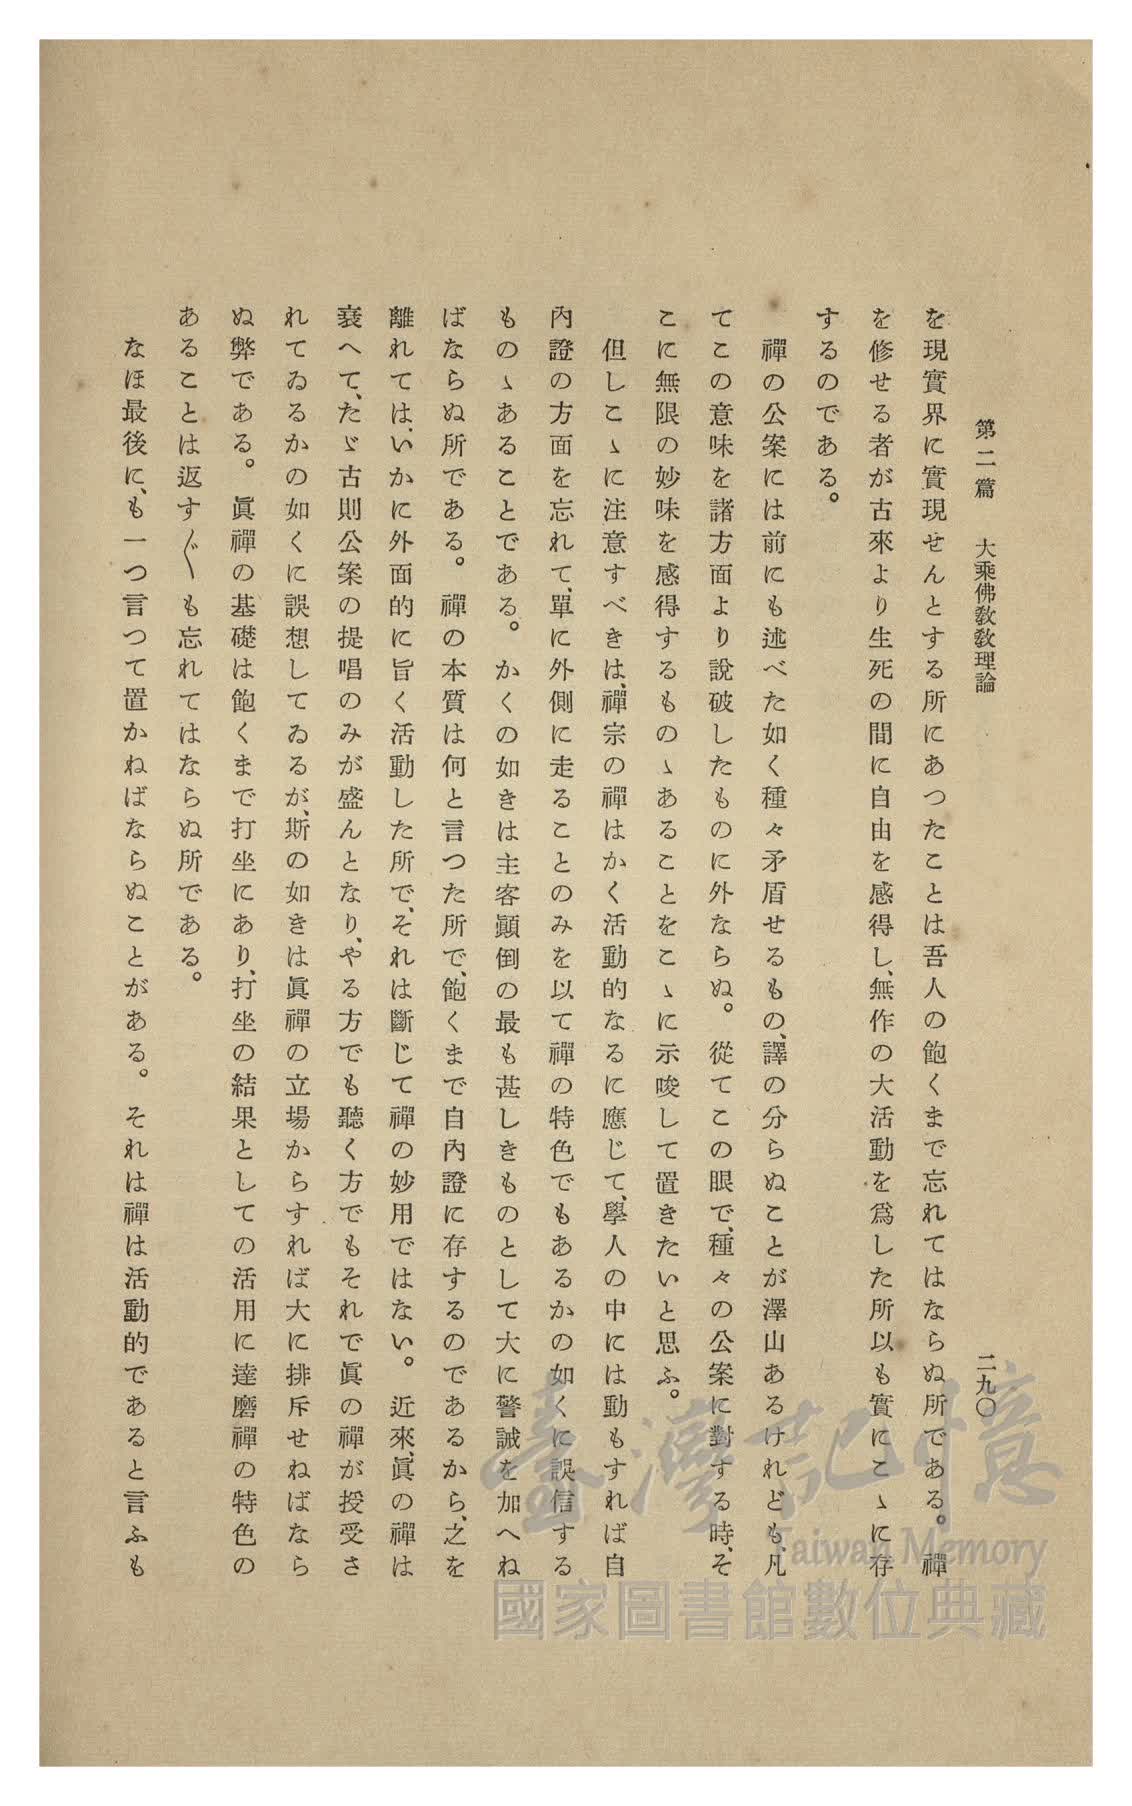 第二篇　大乘佛敎敎理論　二九〇
を現實界に實現せんとする所にあつたことは吾人の飽くまで忘れてはならぬ所である。禪
を修せる者が古來より生死の間に自由を感得し、無作の大活動を爲した所以も實にこゝに存
するのである。
禪の公案には前にも述べた如く種々矛盾せるもの、譯の分らぬことが澤山あるけれども、凡
てこの意味を諸方面より說破したものに外ならぬ。從てこの眼で、種々の公案に對する時、そ
こに無限の妙味を感得するものゝあることをこゝに示唆して置きたいと思ふ。
但しこゝに注意すべきは、禪宗の禪はかく活動的なるに應じて、學人の中には動もすれば自
內證の方面を忘れて、單に外側に走ることのみを以て禪の特色でもあるかの如くに誤信する
ものゝあることである。かくの如きは主客顚倒の最も甚しきものとして大に警誡を加へね
ばならぬ所である。禪の本質は何と言つた所で、飽くまで自內證に存するのであるから、之を
離れては、いかに外面的に旨く活動した所で、それは斷じて禪の妙用ではない。近來、眞の禪は
衰へて、たゞ古則公案の提唱のみが盛んとなり、やる方でも聽く方でもそれで眞の禪が授受さ
れてゐるかの如くに誤想してゐるが、斯の如きは眞禪の立場からすれば大に排斥せねばなら
ぬ弊である。眞禪の基礎は飽くまで打坐にあり、打坐の結果としての活用に達磨禪の特色の
あることは返す〴〵も忘れてはならぬ所である。
なほ最後に、も一つ言つて置かねばならぬことがある。それは禪は活動的であると言ふも
臺灣記憶
Taiwan Memory
國家圖書館數位典藏